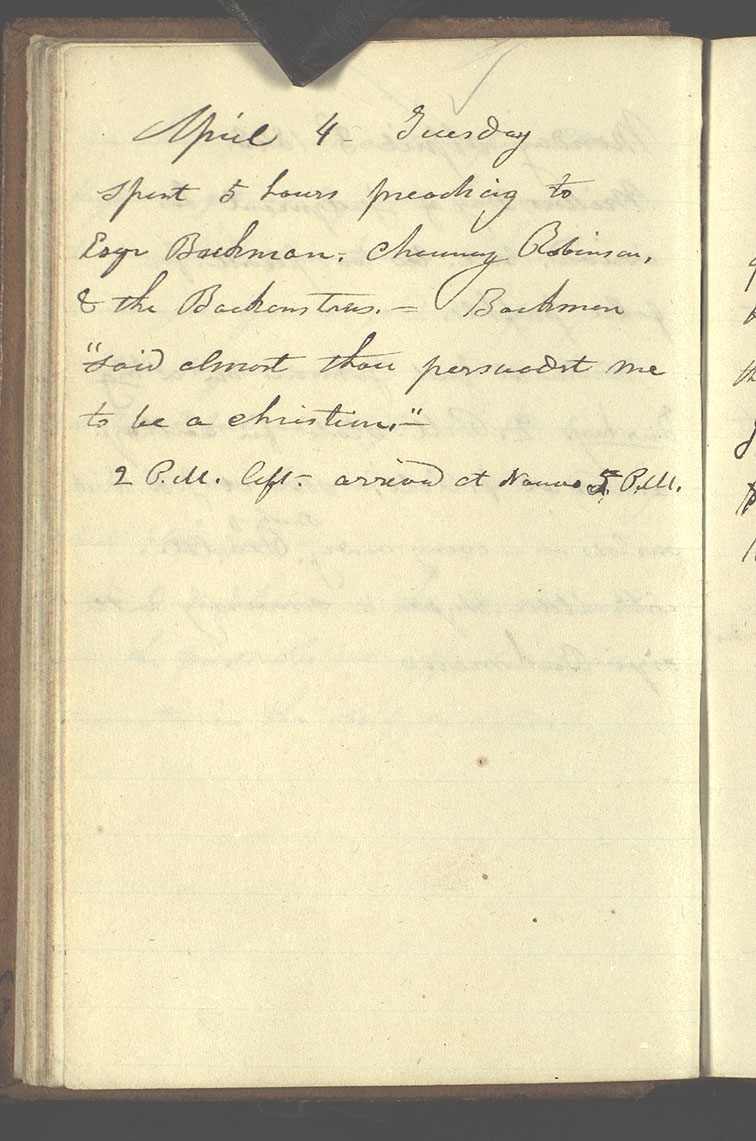 April 4- Tuesday
spent 5 hours preaching to
Esqr Backman, Chauncy Robinson,
& the Backenstows. = Backman
"said almost thou persuadst me
to be a christian."-
2 P.M. left- arrived at Nauvoo 5 P.M.